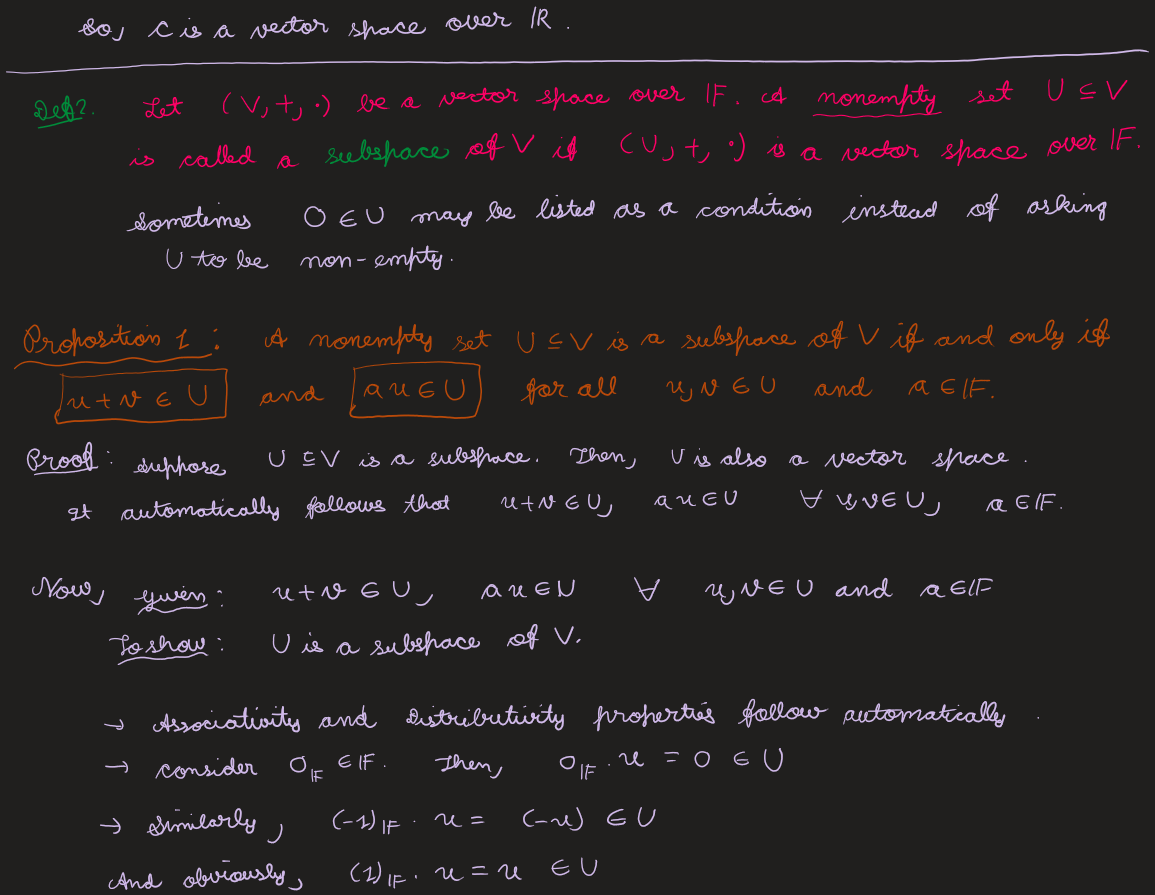 So, C is a vector space over ℝ.
Def?. Let (V, +, ·) be a vector space over 𝔽. A nonempty set U ⊆ V
is called a subspace of V if (U, +, ·) is a vector space over 𝔽.
Sometimes 0 ∈ U may be listed as a condition instead of asking
U to be non-empty.
Proposition 1 : A nonempty set U ⊆ V is a subspace of V if and only if
u + v ∈ U and a u ∈ U for all u, v ∈ U and a ∈ 𝔽.
Proof : Suppose U ⊆ V is a subspace. Then, U is also a vector space.
It automatically follows that u + v ∈ U, a u ∈ U ∀ u, v ∈ U, a ∈ 𝔽.
Now, given : u + v ∈ U, a u ∈ U ∀ u, v ∈ U and a ∈ 𝔽
To show : U is a subspace of V.
→ Associativity and Distributivity properties follow automatically.
→ consider 0_𝔽 ∈ 𝔽. Then, 0_𝔽 · u = 0 ∈ U
→ Similarly, (-1)_𝔽 · u = (-u) ∈ U
And obviously, (1)_𝔽 · u = u ∈ U